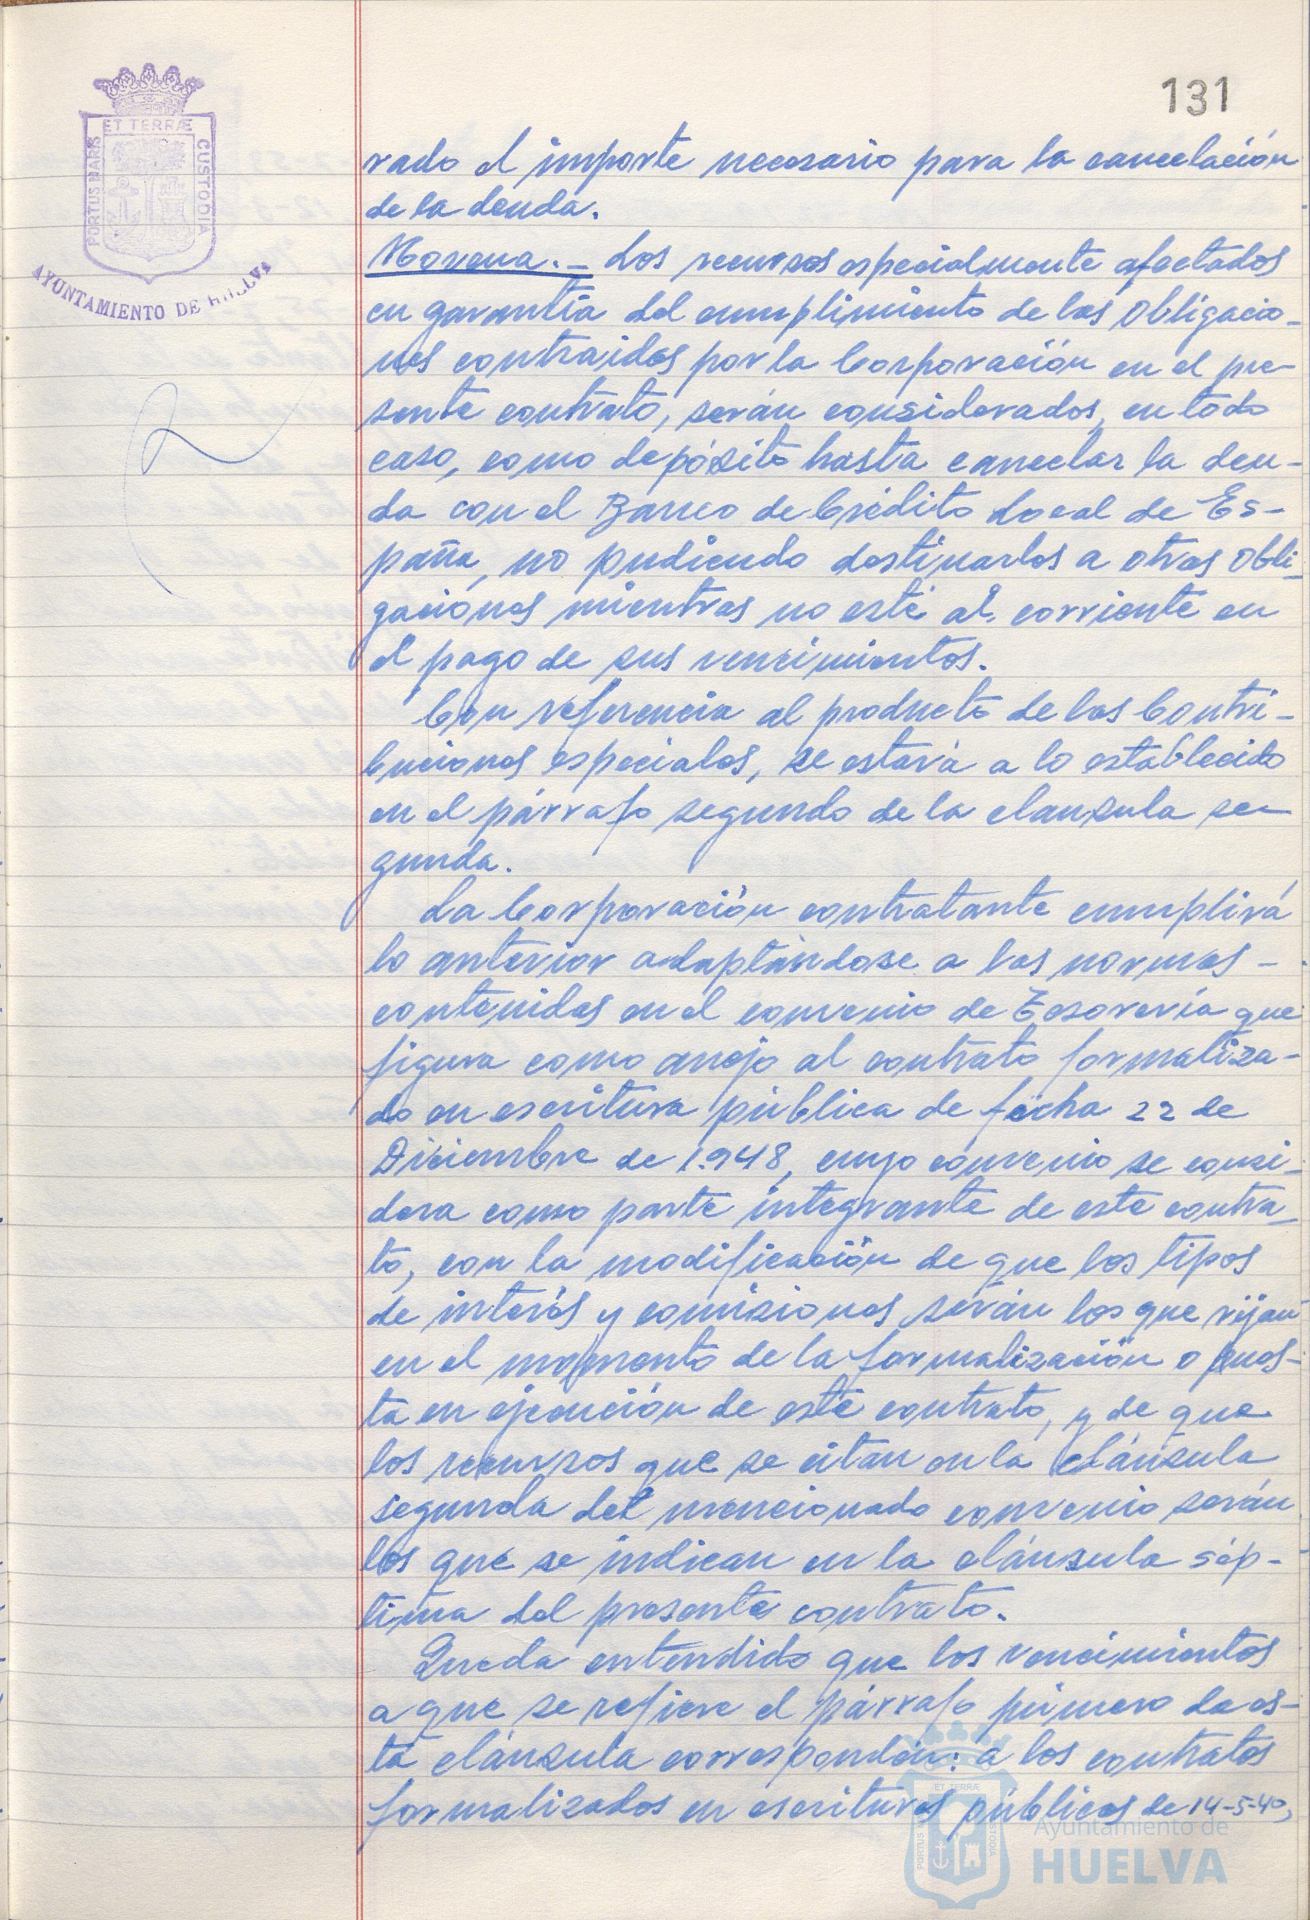 131
ET TERRÆ
PORTUS MARIS
CUSTODIA
AYUNTAMIENTO DE HUELVA
rado el importe necesario para la cancelación
de la deuda.
Novena.- Los recursos especialmente afectados
en garantía del cumplimiento de las obligacio-
nes contraidas por la Corporación en el pre-
sente contrato, serán considerados, en todo
caso, como depósito hasta cancelar la deu-
da con el Banco de Crédito Local de Es-
paña, no pudiendo destinarlos a otras obli-
gaciones mientras no esté al corriente en
el pago de sus vencimientos.
Con referencia al producto de las Contri-
buciones especiales, se estará a lo establecido
en el párrafo segundo de la clausula se-
gunda.
La Corporación contratante cumplirá
lo anterior adaptándose a las normas-
contenidas en el convenio de Tesorería que
figura como anejo al contrato formaliza-
do en escritura pública de fecha 22 de
Diciembre de 1.948, cuyo convenio se consi-
dera como parte integrante de este contra-
to, con la modificación de que los tipos
de interés y comisiones serán los que rijan
en el momento de la formalización o pues-
ta en ejecución de este contrato, y de que
los recursos que se citan en la cláusula
segunda del mencionado convenio serán
los que se indican en la cláusula sép-
tima del presente contrato.
Queda entendido que los vencimientos
a que se refiere el párrafo primero de es-
ta cláusula corresponden: a los contratos
formalizados en escrituras públicas de 14-5-40,
ET TERRÆ
PORTUS MARIS
CUSTODIA
Ayuntamiento de
HUELVA